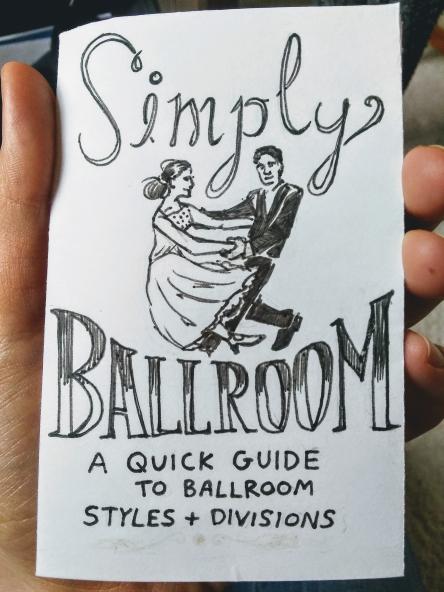 Simply
BALLROOM
A QUICK GUIDE
TO BALLROOM
STYLES + DIVISIONS